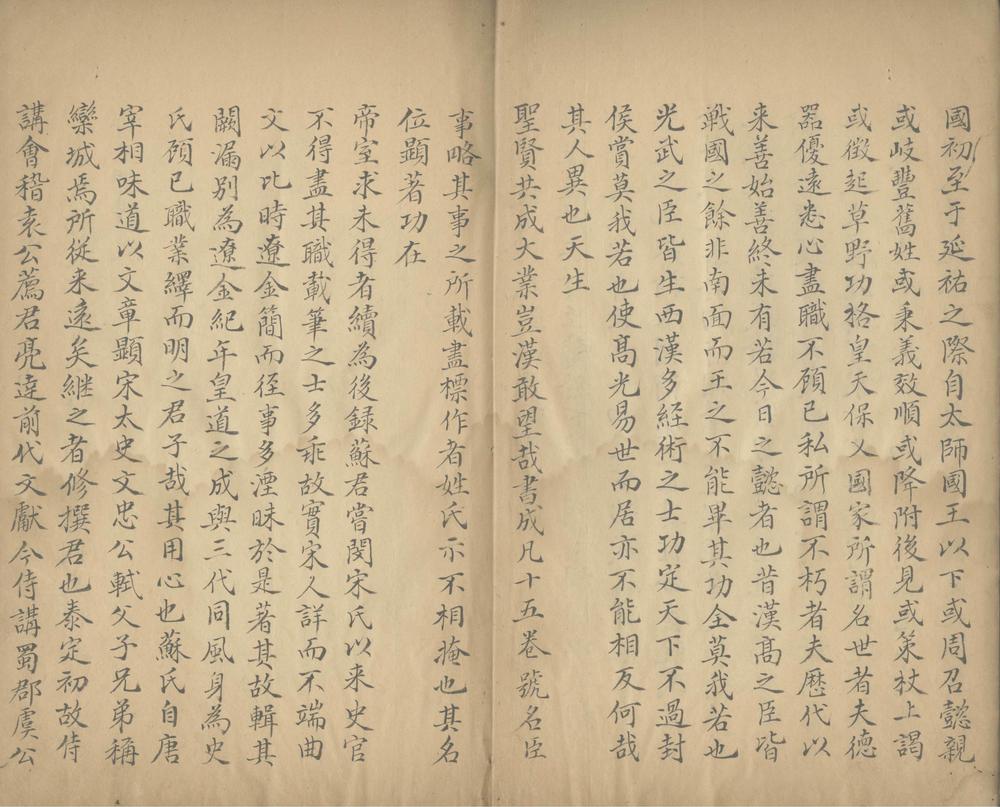 國初至于延祐之際自太師國王以下或周召懿親
或岐豐舊姓或秉義效順或降附後見或策杖上謁
或徵起草野功格皇天保乂國家所謂名世者夫德
器優遠悉心盡職不顧已私所謂不朽者夫歷代以
来善始善終未有若今日之懿者也昔漢髙之臣皆
戰國之餘非南面而王之不能畢其功全莫我若也
光武之臣皆生西漢多経術之士功定天下不過封
侯賞莫我若也使髙光易世而居亦不能相反何哉
其人異也天生
聖賢共成大業豈漢敢望哉書成凡十五卷號名臣
事略其事之所載盡標作者姓氏示不相掩也其名
位顯著功在
帝室求未得者續為後録蘇君嘗閔宋氏以来史官
不得盡其職載筆之士多乖故實宋人詳而不端曲
文以比時遼金簡而徑事多湮昧於是著其故輯其
闕漏別為遼金紀年皇道之成與三代同風身為史
氏顧已職業繹而明之君子哉其用心也蘇氏自唐
宰相味道以文章顯宋太史文忠公軾父子兄弟稱
欒城焉所從来遠矣継之者修撰君也泰定初故侍
講會稽袁公薦君亮達前代文獻今侍講蜀郡虞公